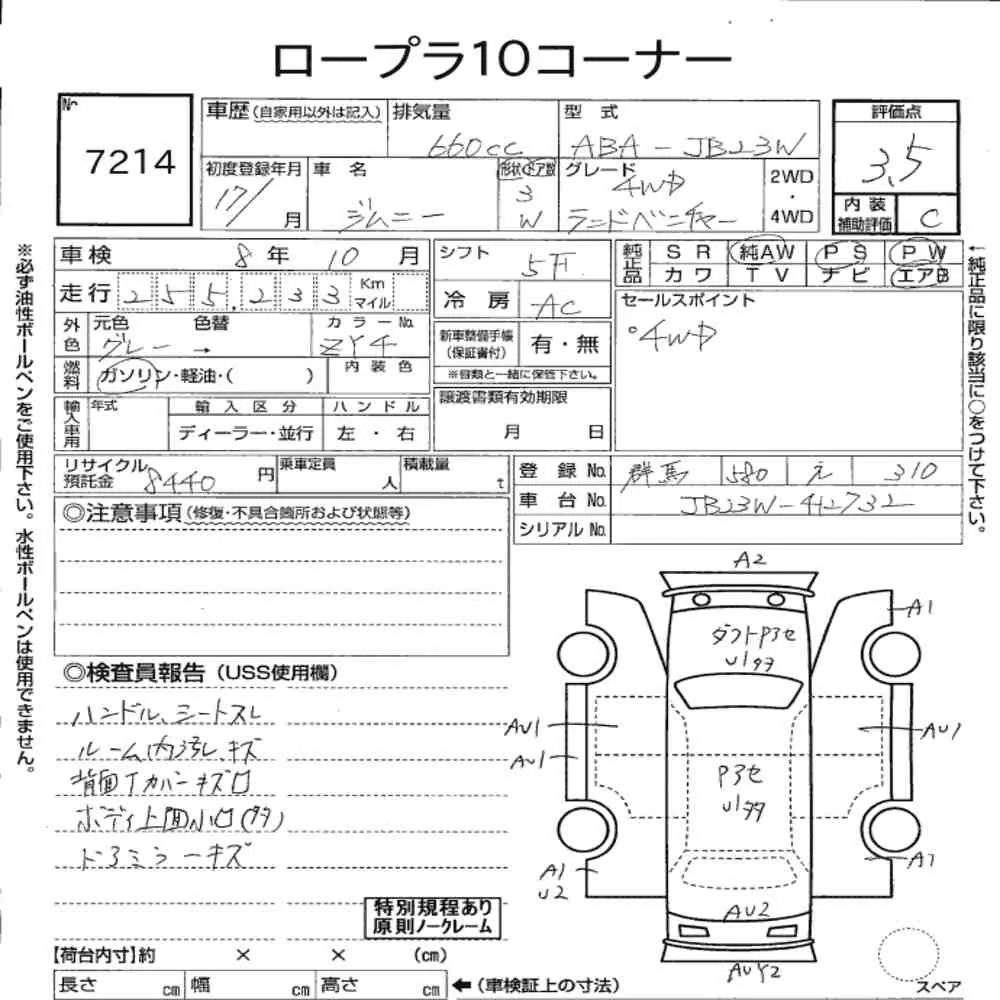 ロープラ10コーナー
No. 7214
車歴(自家用以外は記入) 排気量 660cc 型式 ABA-JB23W
評価点 3.5
初度登録年月 17/ 月 車名 ジムニー 形状 ドア数 3 W グレード 4WD ランドベンチャー 2WD・4WD
内装補助評価 C
車検 8年 10月 シフト 5F
純正品 SR 純AW PS PW
カワ TV ナビ エアB
走行 255,233 Km マイル
冷房 AC
セールスポイント
°4WD
外色 元色 グレー → 色替 カラーNo. ZY4
新車整備手帳(保証書付) 有・無
※書類と一緒に保管下さい。
燃料 ガソリン・軽油・( ) 内装色
譲渡書類有効期限 月 日
輸入車用 年式 輸入区分 ハンドル
ディーラー・並行 左・右
リサイクル預託金 8440円 乗車定員 人 積載量 t
登録No. 群馬 580 え 310
車台No. JB23W-412732
シリアルNo.
◎注意事項(修復・不具合箇所および状態等)
◎検査員報告(USS使用欄)
ハンドル、シートスレ
ルーム内汚れ、キズ
背面Tカバーキズ
ボディ上面小
ドアミラーキズ
特別規程あり
原則ノークレーム
【荷台内寸】約 × × (cm)
長さ cm 幅 cm 高さ cm ←(車検証上の寸法)
※必ず油性ボールペンをご使用下さい。水性ボールペンは使用できません。
←純正品に限り該当に○をつけて下さい。
A2
A1
ダフトPヨセ
U1
AU1
AU1
AU1
Pヨセ
U1
A1
U2
A1
AU2
AUY2
スペア